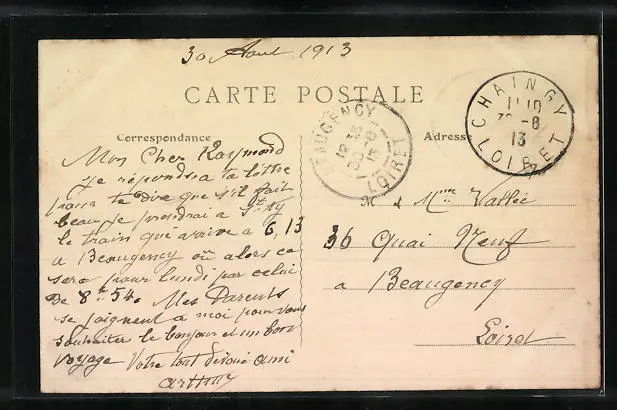 30 Aout 1913
CARTE POSTALE
Correspondance
Adresse
BEAUGENCY
LOIRET
CHAINGY
30 -8
13
LOIRET
Mon Cher Raymond
je répondrai a ta lettre
pour te dire que s'il fait
beau je prendrai a St. Ay
le train qui arrive a 6,13
a Beaugency où alors ce
sera pour lundi par celui
de 8h 54. Mes Parents
se joignent a moi pour vous
souhaiter le bonjour et un bon
voyage Votre tout dévoué ami
Arthur
M. & Mme Vallée
36 Quai Neuf
a Beaugency
Loiret